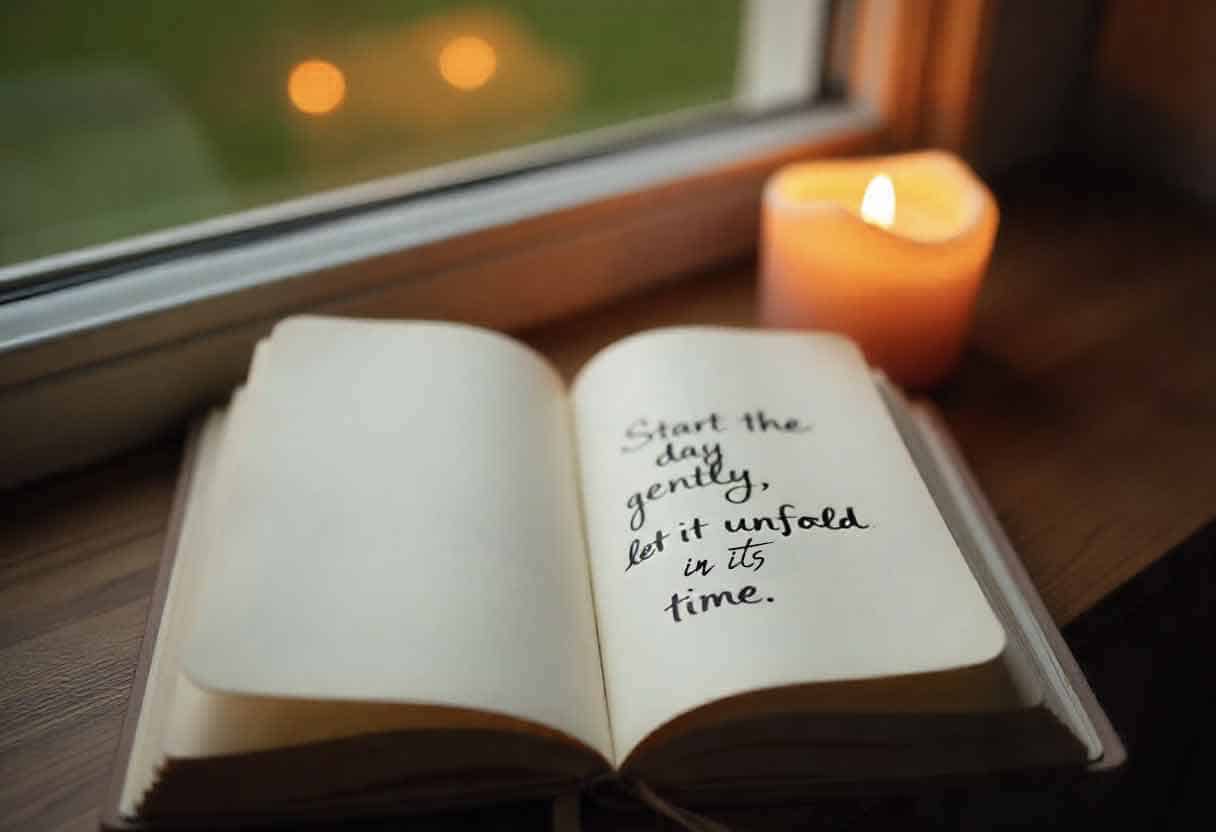 Start the
day
gently,
let it unfold
in its
time.